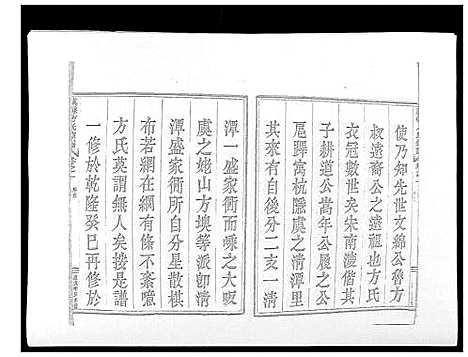 使乃知先世文綿公魯方
叔遠裔公之遠祖也方氏
衣冠數世矣朱南渡偕其
子耕道公當年公履之公
扈驆寓杭隱虞之清潭里
其來有自後分二支一清
潭一盛家衕而嵊之大坂
虞之姥山方墺等派即清
潭盛家衕所自分星散棋
布若網在綱有條不紊噫
方氏莫謂無人矣接是譜
一修於乾隆癸巳再修於